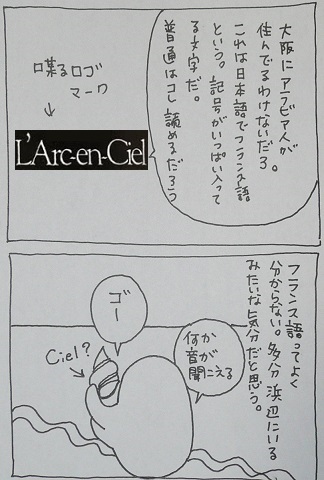 大阪にアラビア人が
住んでるわけないだろ。
これは日本語でフランス語
という。記号がいっぱい入って
る文字だ。
普通はコレ読めるだろう
喋るロゴ
マーク
L'Arc-en-Ciel
フランス語ってよく
分からない。多分浜辺にいる
みたいな気分だと思う。
ゴー
何か
音が
聞こえる
Ciel?